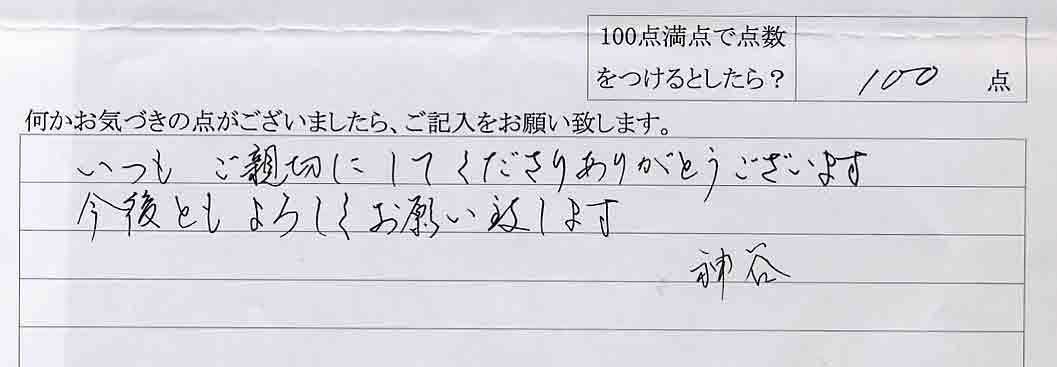 100点満点で点数
をつけるとしたら？
100 点
何かお気づきの点がございましたら、ご記入をお願い致します。
いつも ご親切にしてくださりありがとうございます
今後ともよろしくお願い致します
神谷